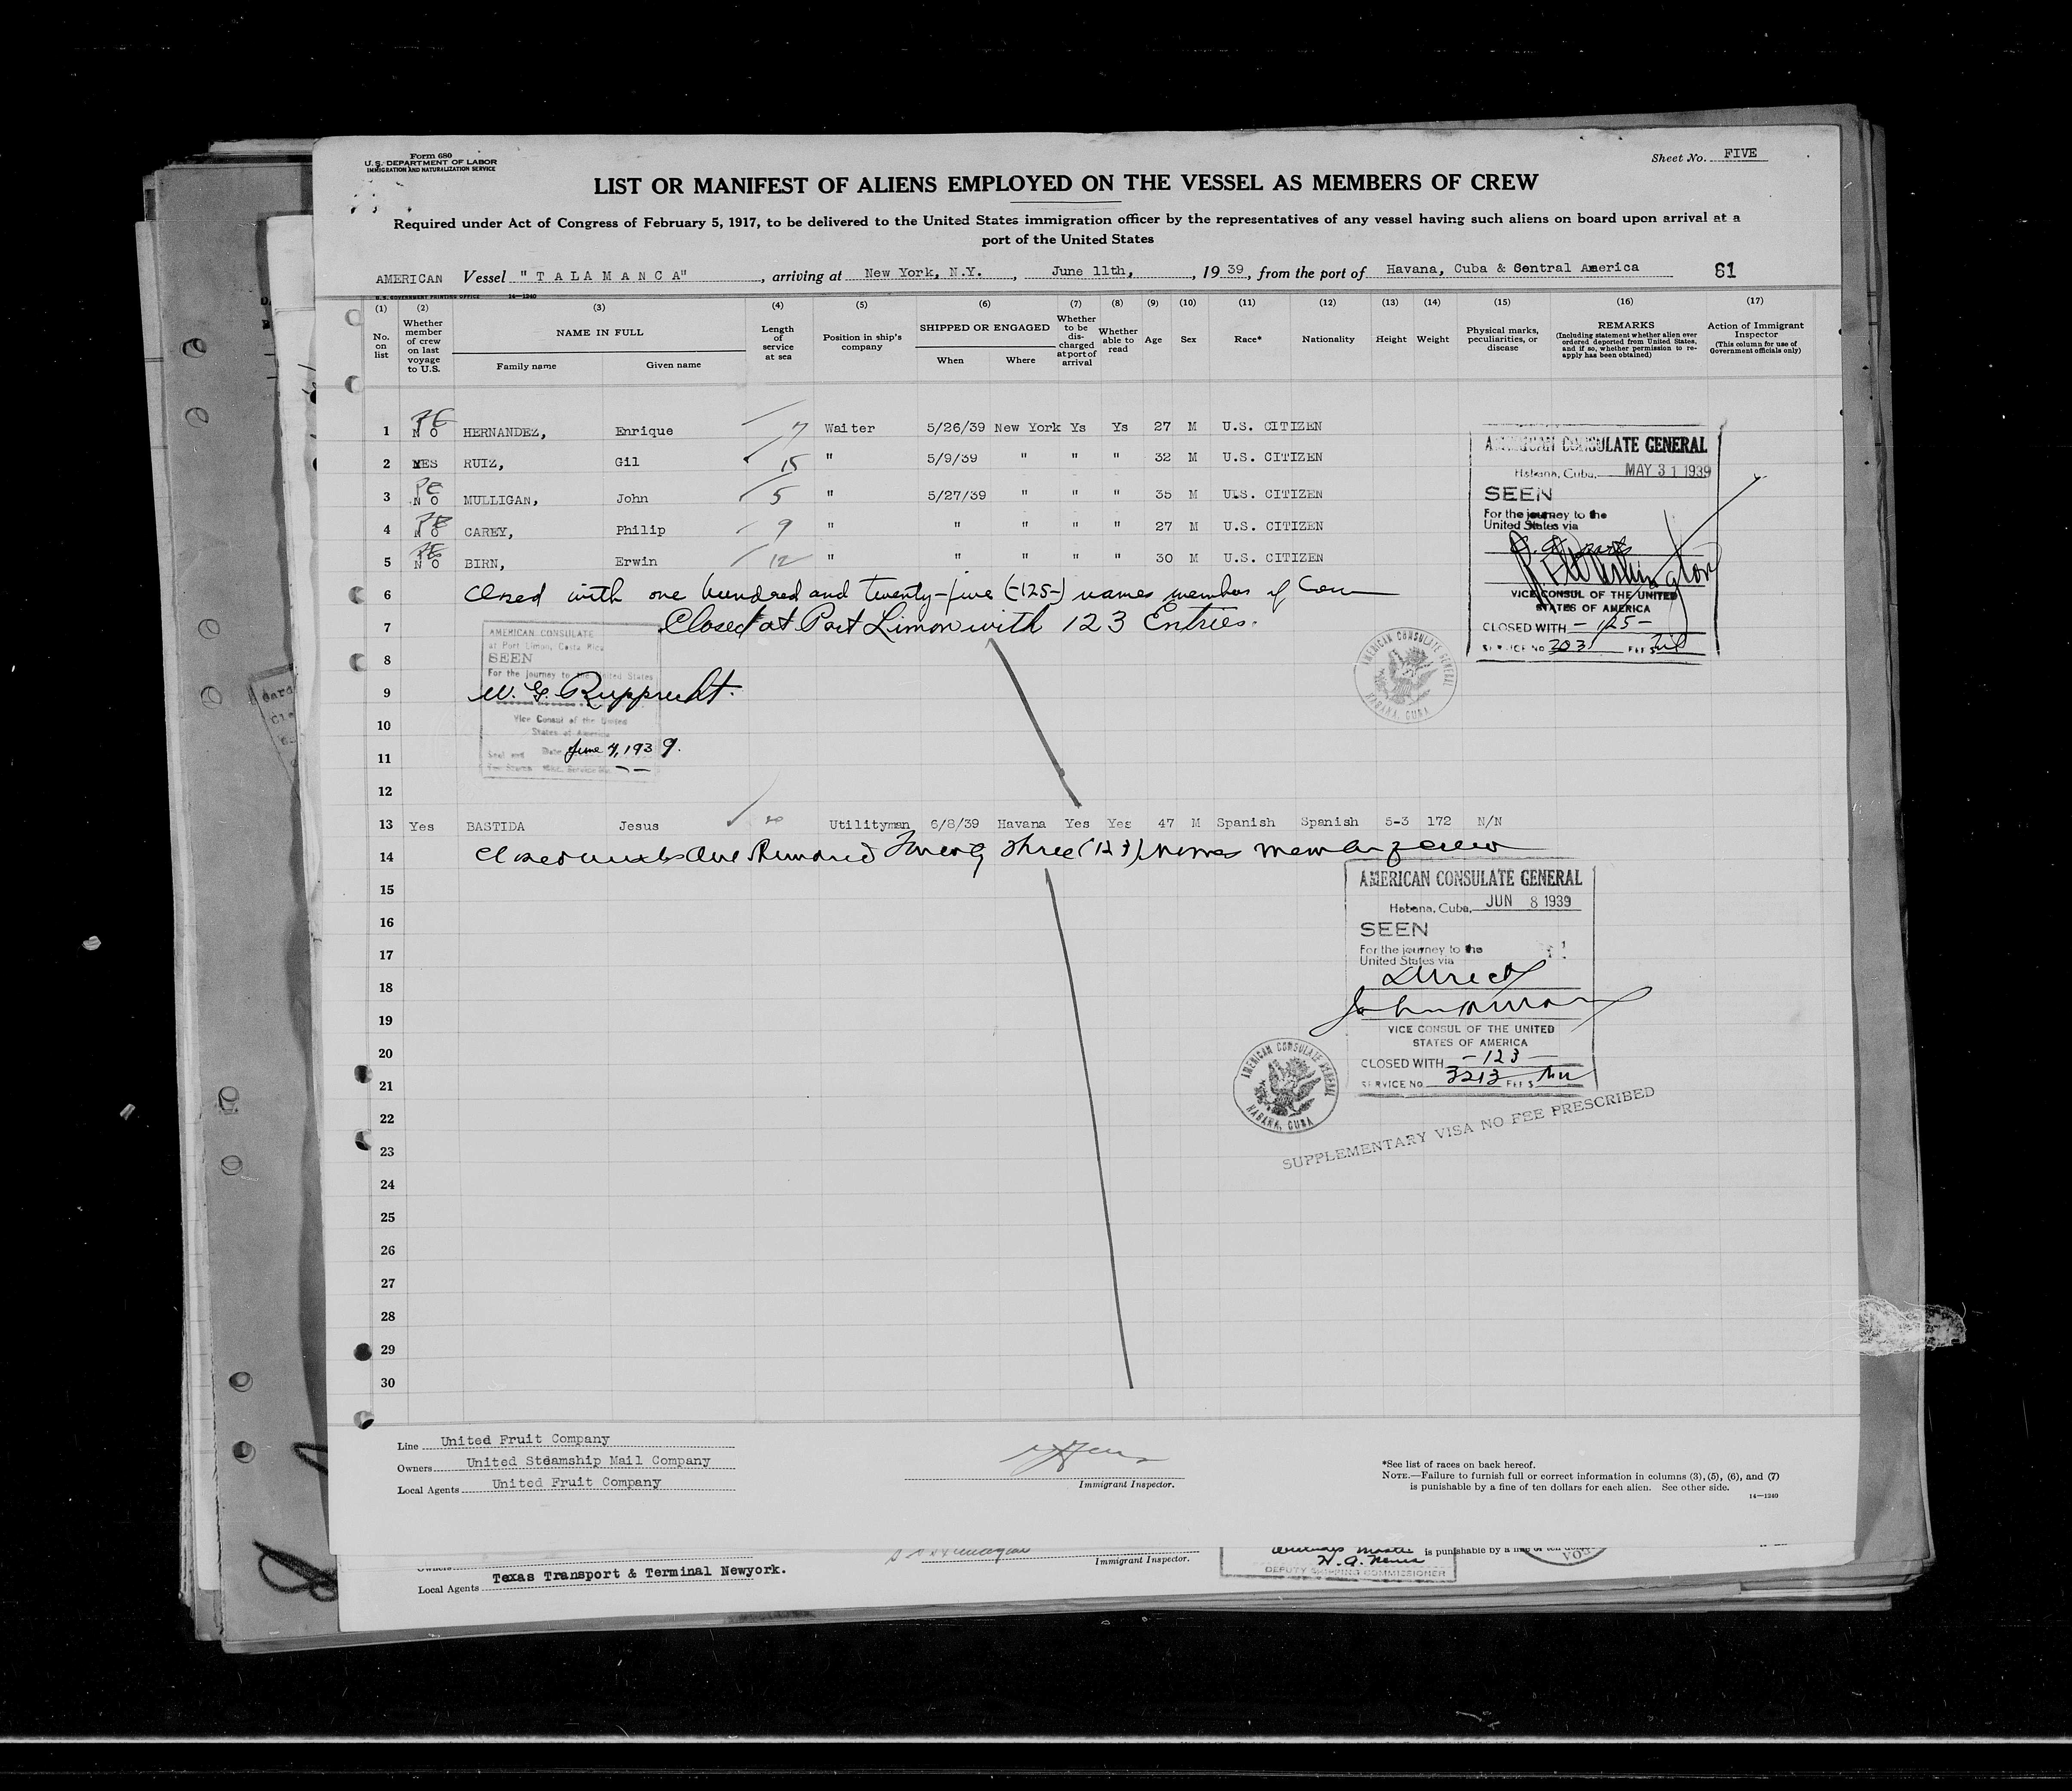 Form 680
U. S. DEPARTMENT OF LABOR
IMMIGRATION AND NATURALIZATION SERVICE
Sheet No. FIVE
LIST OR MANIFEST OF ALIENS EMPLOYED ON THE VESSEL AS MEMBERS OF CREW
Required under Act of Congress of February 5, 1917, to be delivered to the United States immigration officer by the representatives of any vessel having such aliens on board upon arrival at a
port of the United States
AMERICAN Vessel "TALAMANCA", arriving at New York, N.Y., June 11th, , 19 39, from the port of Havana, Cuba & Sentral America 61
U. S. GOVERNMENT PRINTING OFFICE 14—1240
(1) (2) (3) (4) (5) (6) (7) (8) (9) (10) (11) (12) (13) (14) (15) (16) (17)
No. on list
Whether member of crew on last voyage to U.S.
NAME IN FULL
Family name Given name
Length of service at sea
Position in ship's company
SHIPPED OR ENGAGED
When Where
Whether to be discharged at port of arrival
Whether able to read
Age
Sex
Race*
Nationality
Height
Weight
Physical marks, peculiarities, or disease
REMARKS
(Including statement whether alien ever ordered deported from United States, and if so, whether permission to reapply has been obtained)
Action of Immigrant Inspector
(This column for use of Government officials only)
1 NO HERNANDEZ, Enrique 7 Waiter 5/26/39 New York Ys Ys 27 M U.S. CITIZEN
2 YES RUIZ, Gil 15 " 5/9/39 " " " 32 M U.S. CITIZEN
3 NO MULLIGAN, John 5 " 5/27/39 " " " 35 M U.S. CITIZEN
4 NO CAREY, Philip 9 " " " " " 27 M U.S. CITIZEN
5 NO BIRN, Erwin 12 " " " " " 30 M U.S. CITIZEN
6 Closed with one hundred and twenty-five (-125-) names members of crew
7 Closed at Port Limon with 123 Entries.
8
9
10
11
12
AMERICAN CONSULATE
at Port Limon, Costa Rica
SEEN
For the journey to the United States
W. G. Rupprecht.
Vice Consul of the United
States of America
Date June 4, 1939.
AMERICAN CONSULATE GENERAL
Habana, Cuba, MAY 31 1939
SEEN
For the journey to the
United States via
VICE CONSUL OF THE UNITED
STATES OF AMERICA
CLOSED WITH -125-
SERVICE NO 203 FEE $ nil
AMERICAN CONSULATE GENERAL
HABANA, CUBA
13 Yes BASTIDA Jesus 20 Utilityman 6/8/39 Havana Yes Yes 47 M Spanish Spanish 5-3 172 N/N
14 Closed with One Hundred Twenty three (123) names member of crew
15
16
17
18
19
20
21
22
23
24
25
26
27
28
29
30
AMERICAN CONSULATE GENERAL
Habana, Cuba, JUN 8 1939
SEEN
For the journey to the
United States via
Direct
VICE CONSUL OF THE UNITED
STATES OF AMERICA
CLOSED WITH -123-
SERVICE NO 3213 FEE $
AMERICAN CONSULATE GENERAL
HABANA, CUBA
SUPPLEMENTARY VISA NO FEE PRESCRIBED
Line United Fruit Company
Owners United Steamship Mail Company
Local Agents United Fruit Company
Immigrant Inspector.
*See list of races on back hereof.
NOTE.—Failure to furnish full or correct information in columns (3), (5), (6), and (7)
is punishable by a fine of ten dollars for each alien. See other side.
14—1240
Local Agents Texas Transport & Terminal Newyork.
Immigrant Inspector.
DEPUTY SHIPPING COMMISSIONER
is punishable by a fine of ten